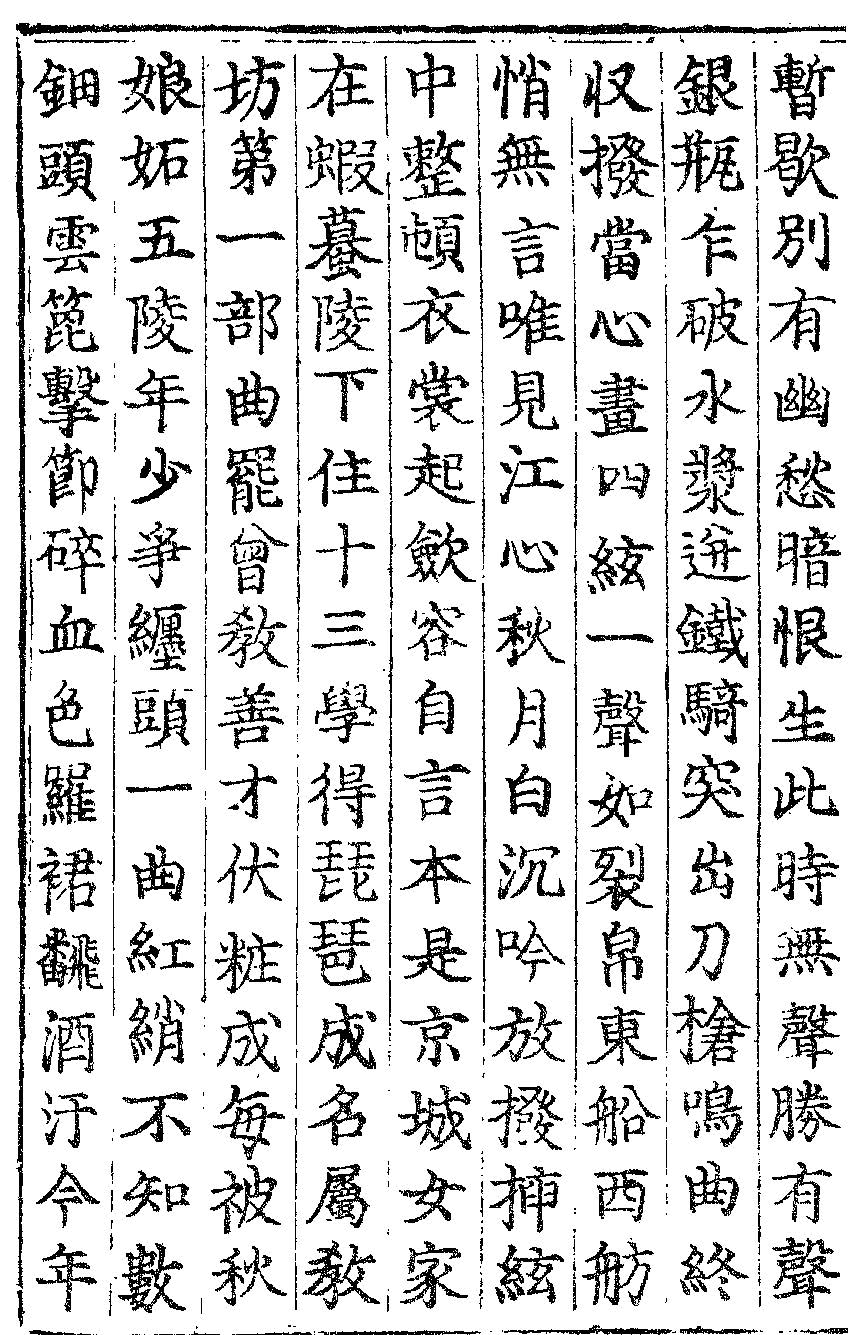 暫歇別有幽愁暗恨生此時無聲勝有聲
銀瓶乍破水漿迸鐵騎突出刀槍鳴曲終
収撥當心畫四絃一聲如裂帛東船西舫
悄無言唯見江心秋月白沉吟放撥揷絃
中整頓衣裳起歛容自言本是京城女家
在蝦蟇陵下住十三學得琵琶成名屬教
坊第一部曲罷曾教善才伏粧成每被秋
娘妬五陵年少爭纏頭一曲紅綃不知數
鈿頭雲篦擊節碎血色羅裙翻酒汙今年